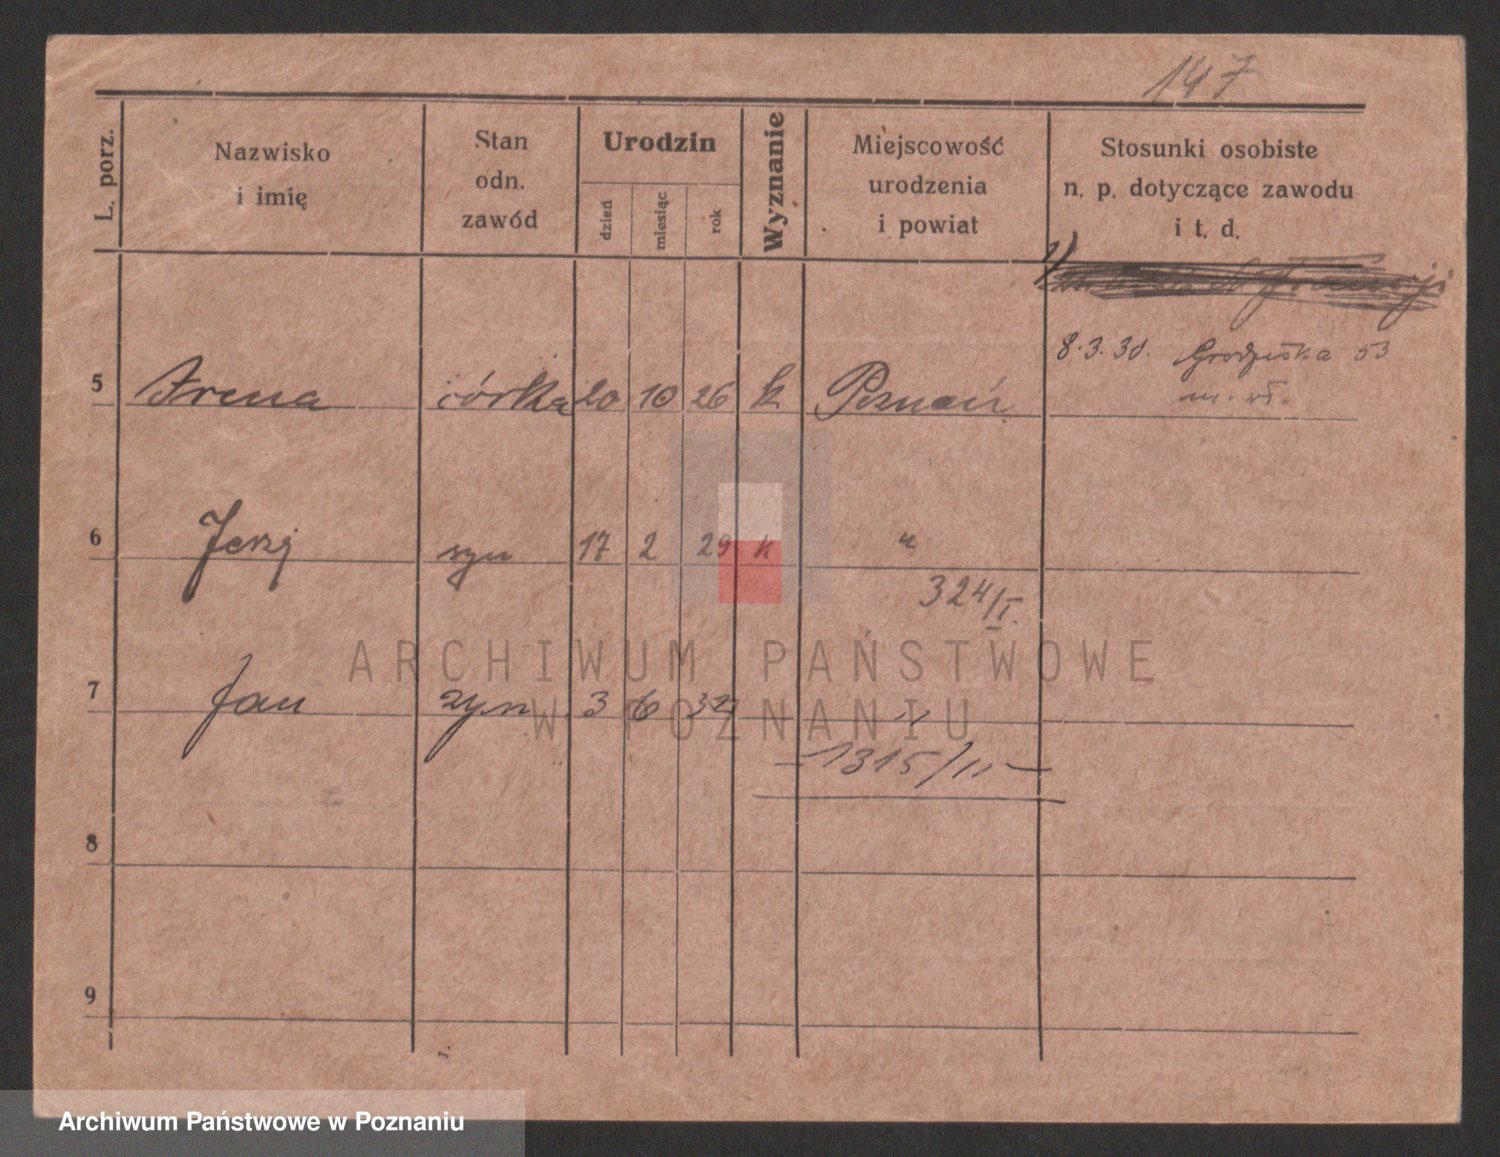 147
L. porz.
Nazwisko
i imię
Stan
odn.
zawód
Urodzin
dzień
miesiąc
rok
Wyznanie
Miejscowość
urodzenia
i powiat
Stosunki osobiste
n. p. dotyczące zawodu
i t. d.
1/
8.3.38. Grodziska 53
5 Irena córka 20 10 26 k Poznań
6 Jerzy syn 17 2 29 k "
324/I.
7 Jan syn 3 6 "
1315/II
8
9
ARCHIWUM PAŃSTWOWE
W POZNANIU
Archiwum Państwowe w Poznaniu